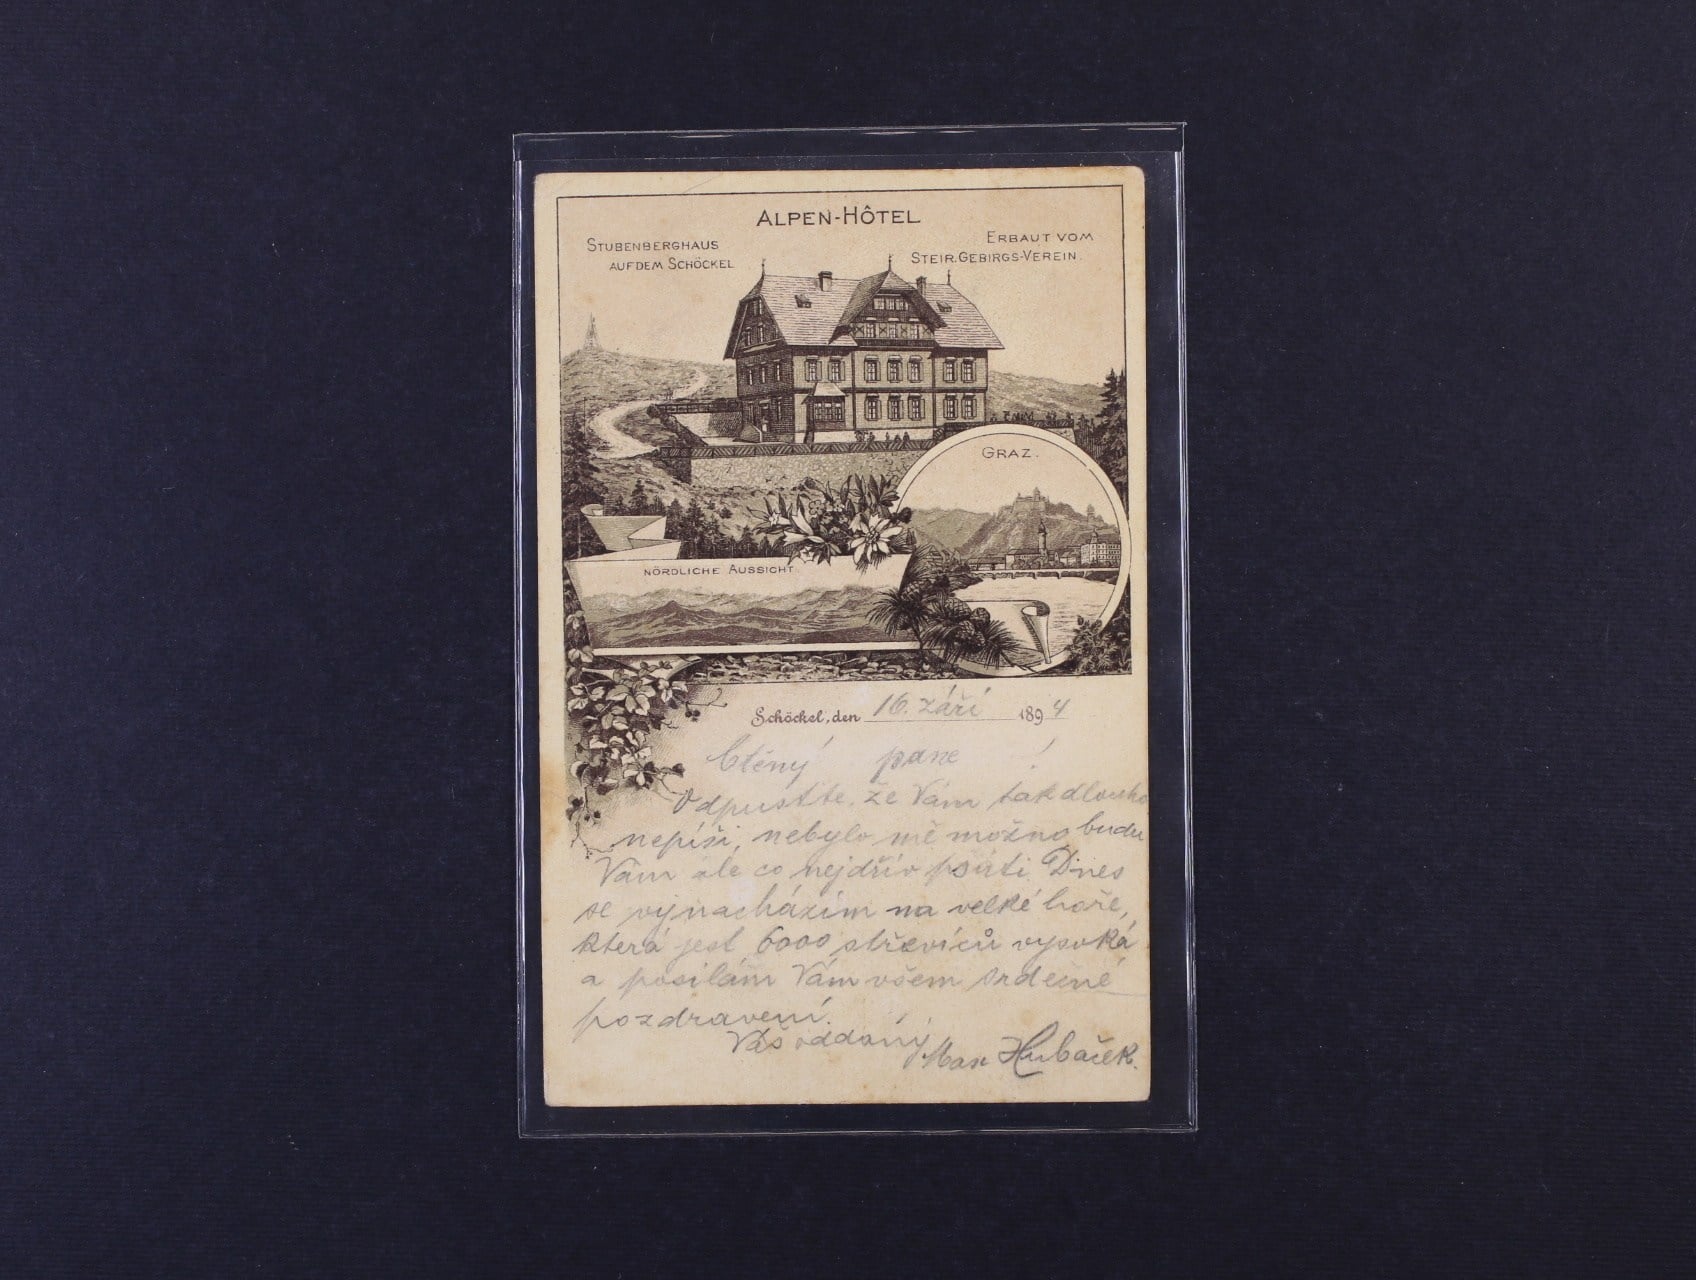 ALPEN-HÔTEL
STUBENBERGHAUS
AUF DEM SCHÖCKEL
ERBAUT VOM
STEIR. GEBIRGS-VEREIN.
GRAZ.
NÖRDLICHE AUSSICHT.
Schöckel, den 16. září 1894
Ctěný pane !
Odpusťte, že Vám tak dlouho
nepíši, nebylo mě možno budu
Vám ale co nejdřív psáti. Dnes
se vynacházím na velké hoře,
která jest 6000 střevíců vysoká
a posílám Vám všem srdečné
pozdravení.
Váš oddaný
Max Hubaček.